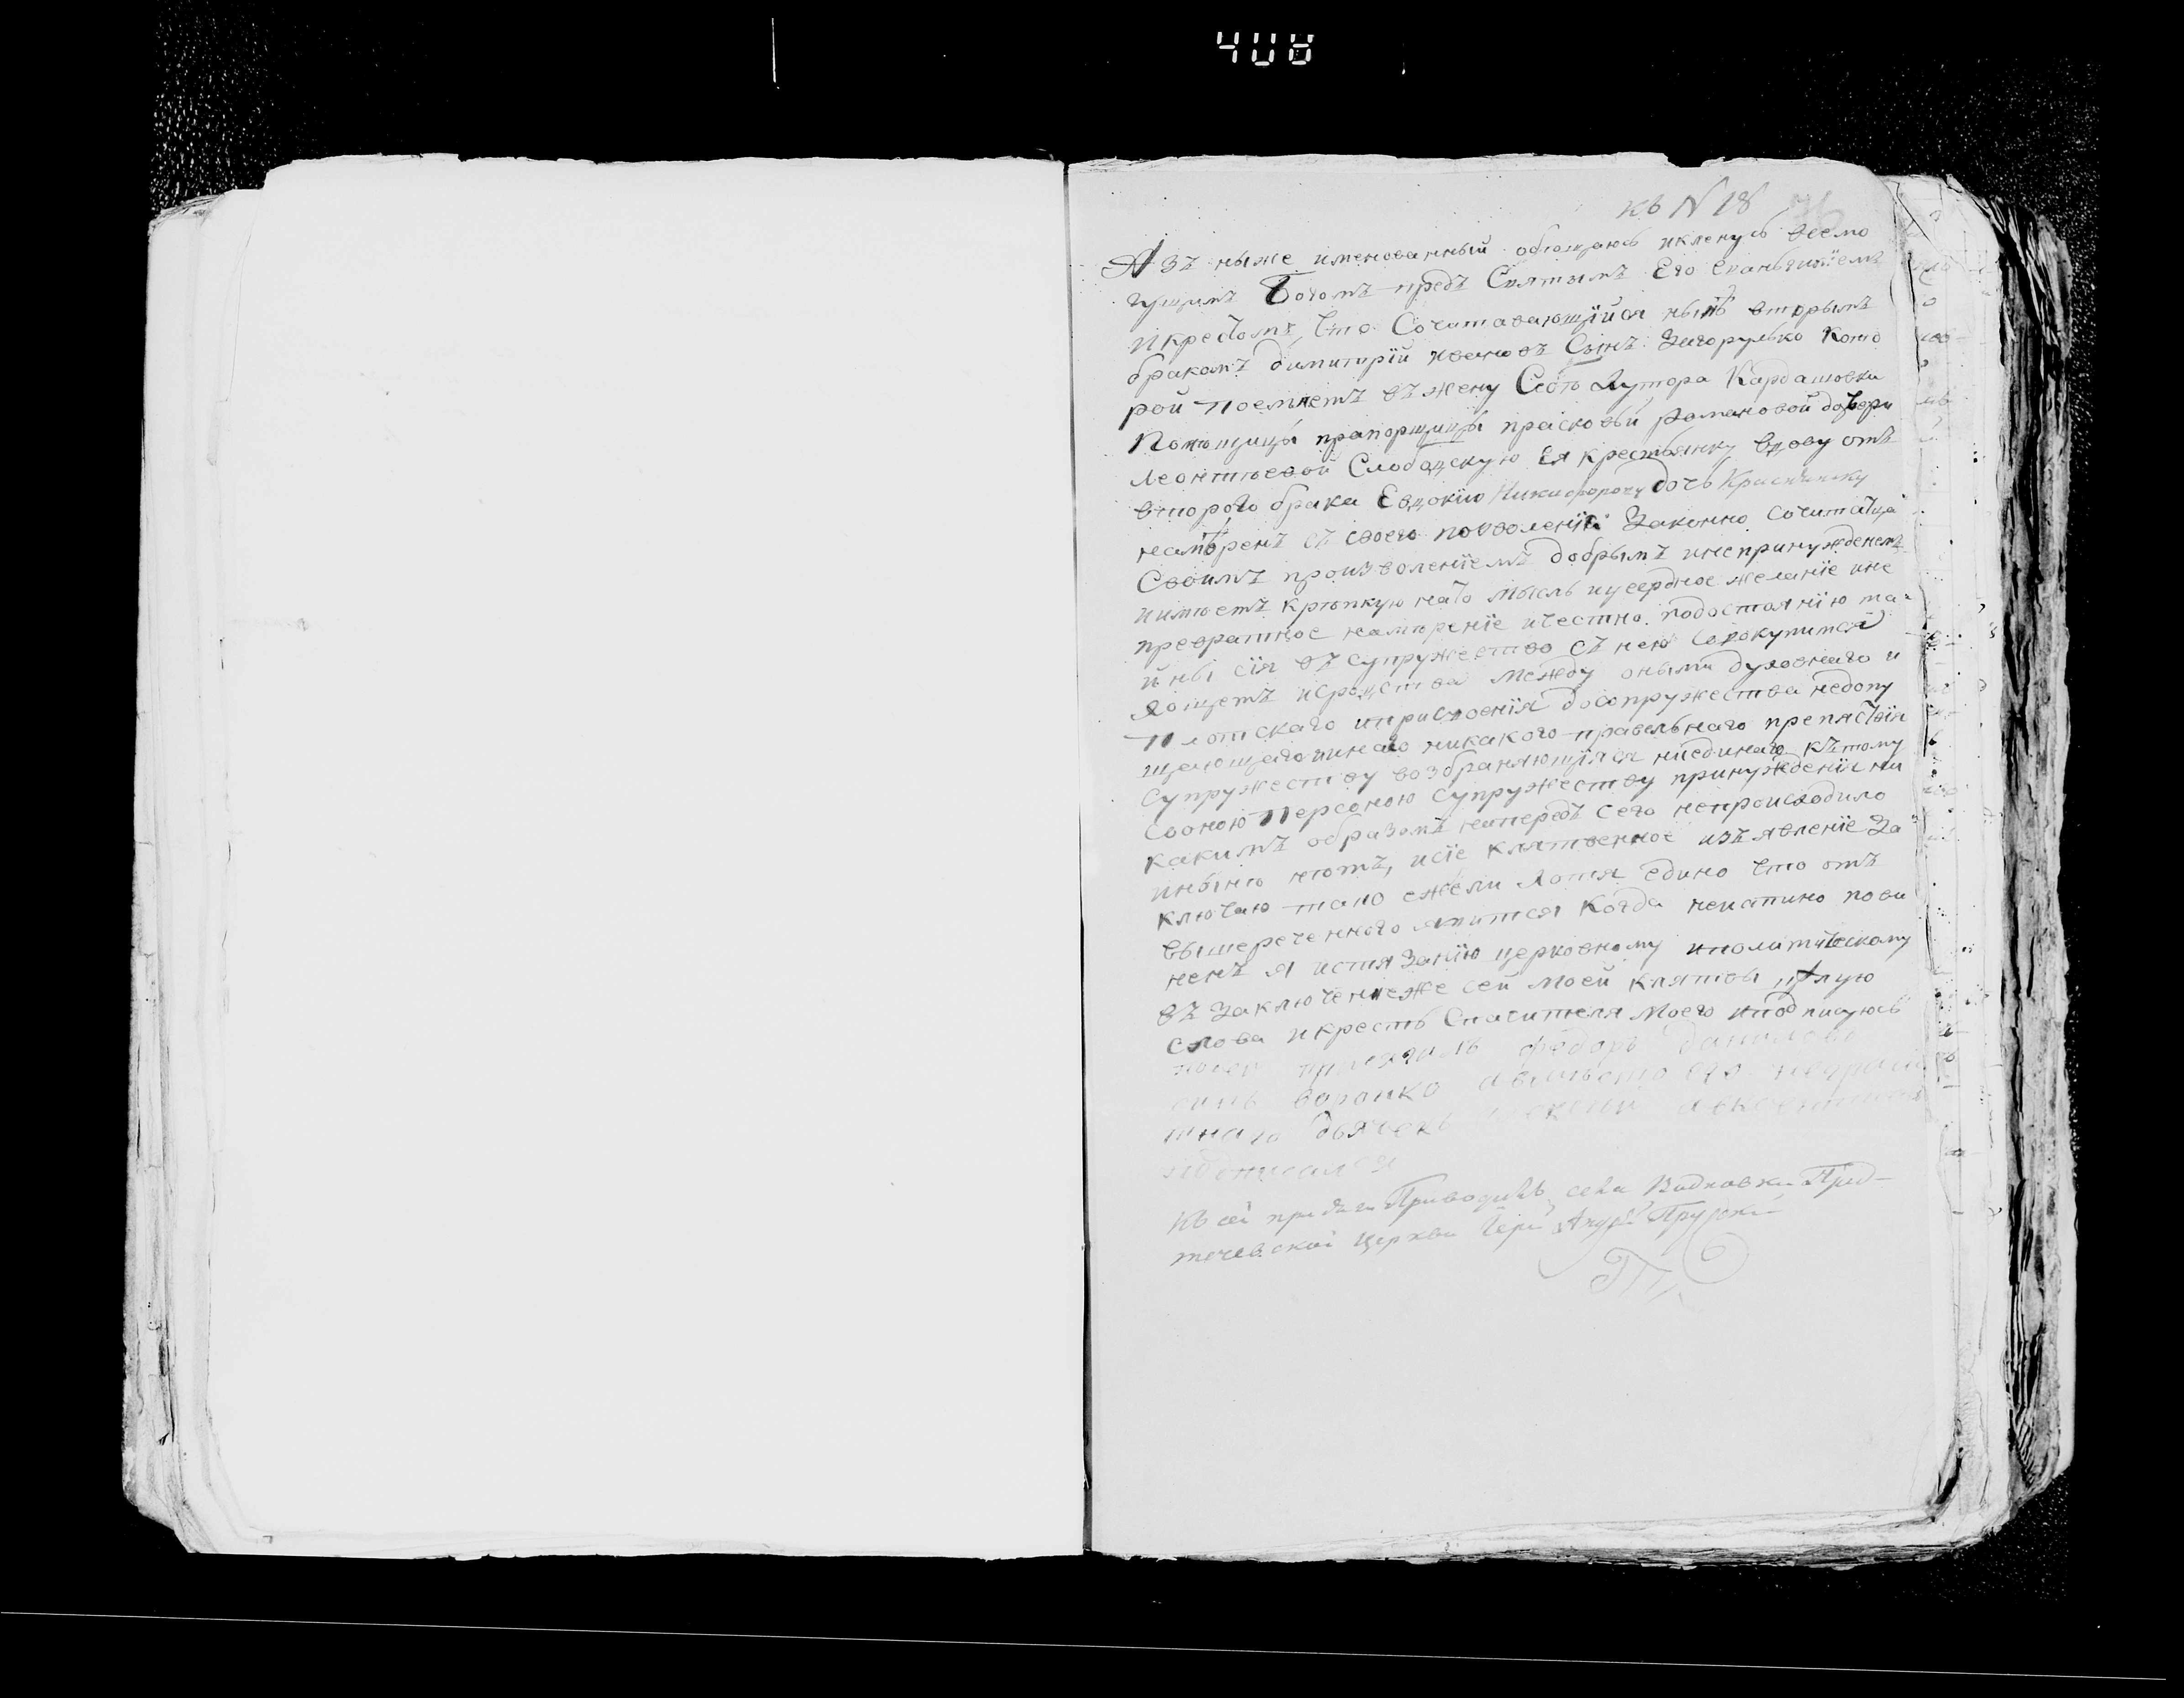 408
къ N 18
Азъ ниже именованный обещаюсь иклянусь всемо
гущимъ Богомъ предъ Святымъ Его Еваньгилїемъ
икрестомъ, что Сочитавающїйся нынѣ вторымъ
бракомъ димитрїй ивановъ Сынъ Загорулько Кото
рой поемлетъ въ жену Себѣ хутора Кардашовки
Помѣщицы прапорщицы прасковьи Романовой дочери
леонтьевой Слободскую Ея крестьянку вдову отъ
второго брака Евдокїю Никифорову дочь
намѣренъ съ своего поволенїя Законно сочитатца
Своимъ произволенїемъ добрымъ инепринужденемъ
иимѣетъ крѣпкую нато мысль иусердное желанїе ине
превратное намѣренїе ичестно подостоянїю та
йны сїя въ супружество съ нею совокупится
хощетъ исродства между оными духовнаго и
плотскаго иприсвоенїя досопружества недопу
щающаго никакого правельнаго препятствїя
супружеству возбраняющїяся ниединаго къ тому
соною персоною супружеству принужденїя ни
какимъ образомъ напередъ сего непроисходило
инынѣ нѣтъ, исїе клятвенное изъявленїе За
ключаю тако ежели хотя едино что отъ
вышереченного явится когда неистино пови
ненъ я истязанїю церковному иполитическому
въ Заключениеже сей моей клятвы цѣлую
слова икрестъ Спасителя моего иподписуюсь
присягилъ федоръ данилова
синъ его неграмо
тнаго дьячекъ
подписался
Къ сей присяги Приводилъ села Предтечевской
церкви Іерей Андрей